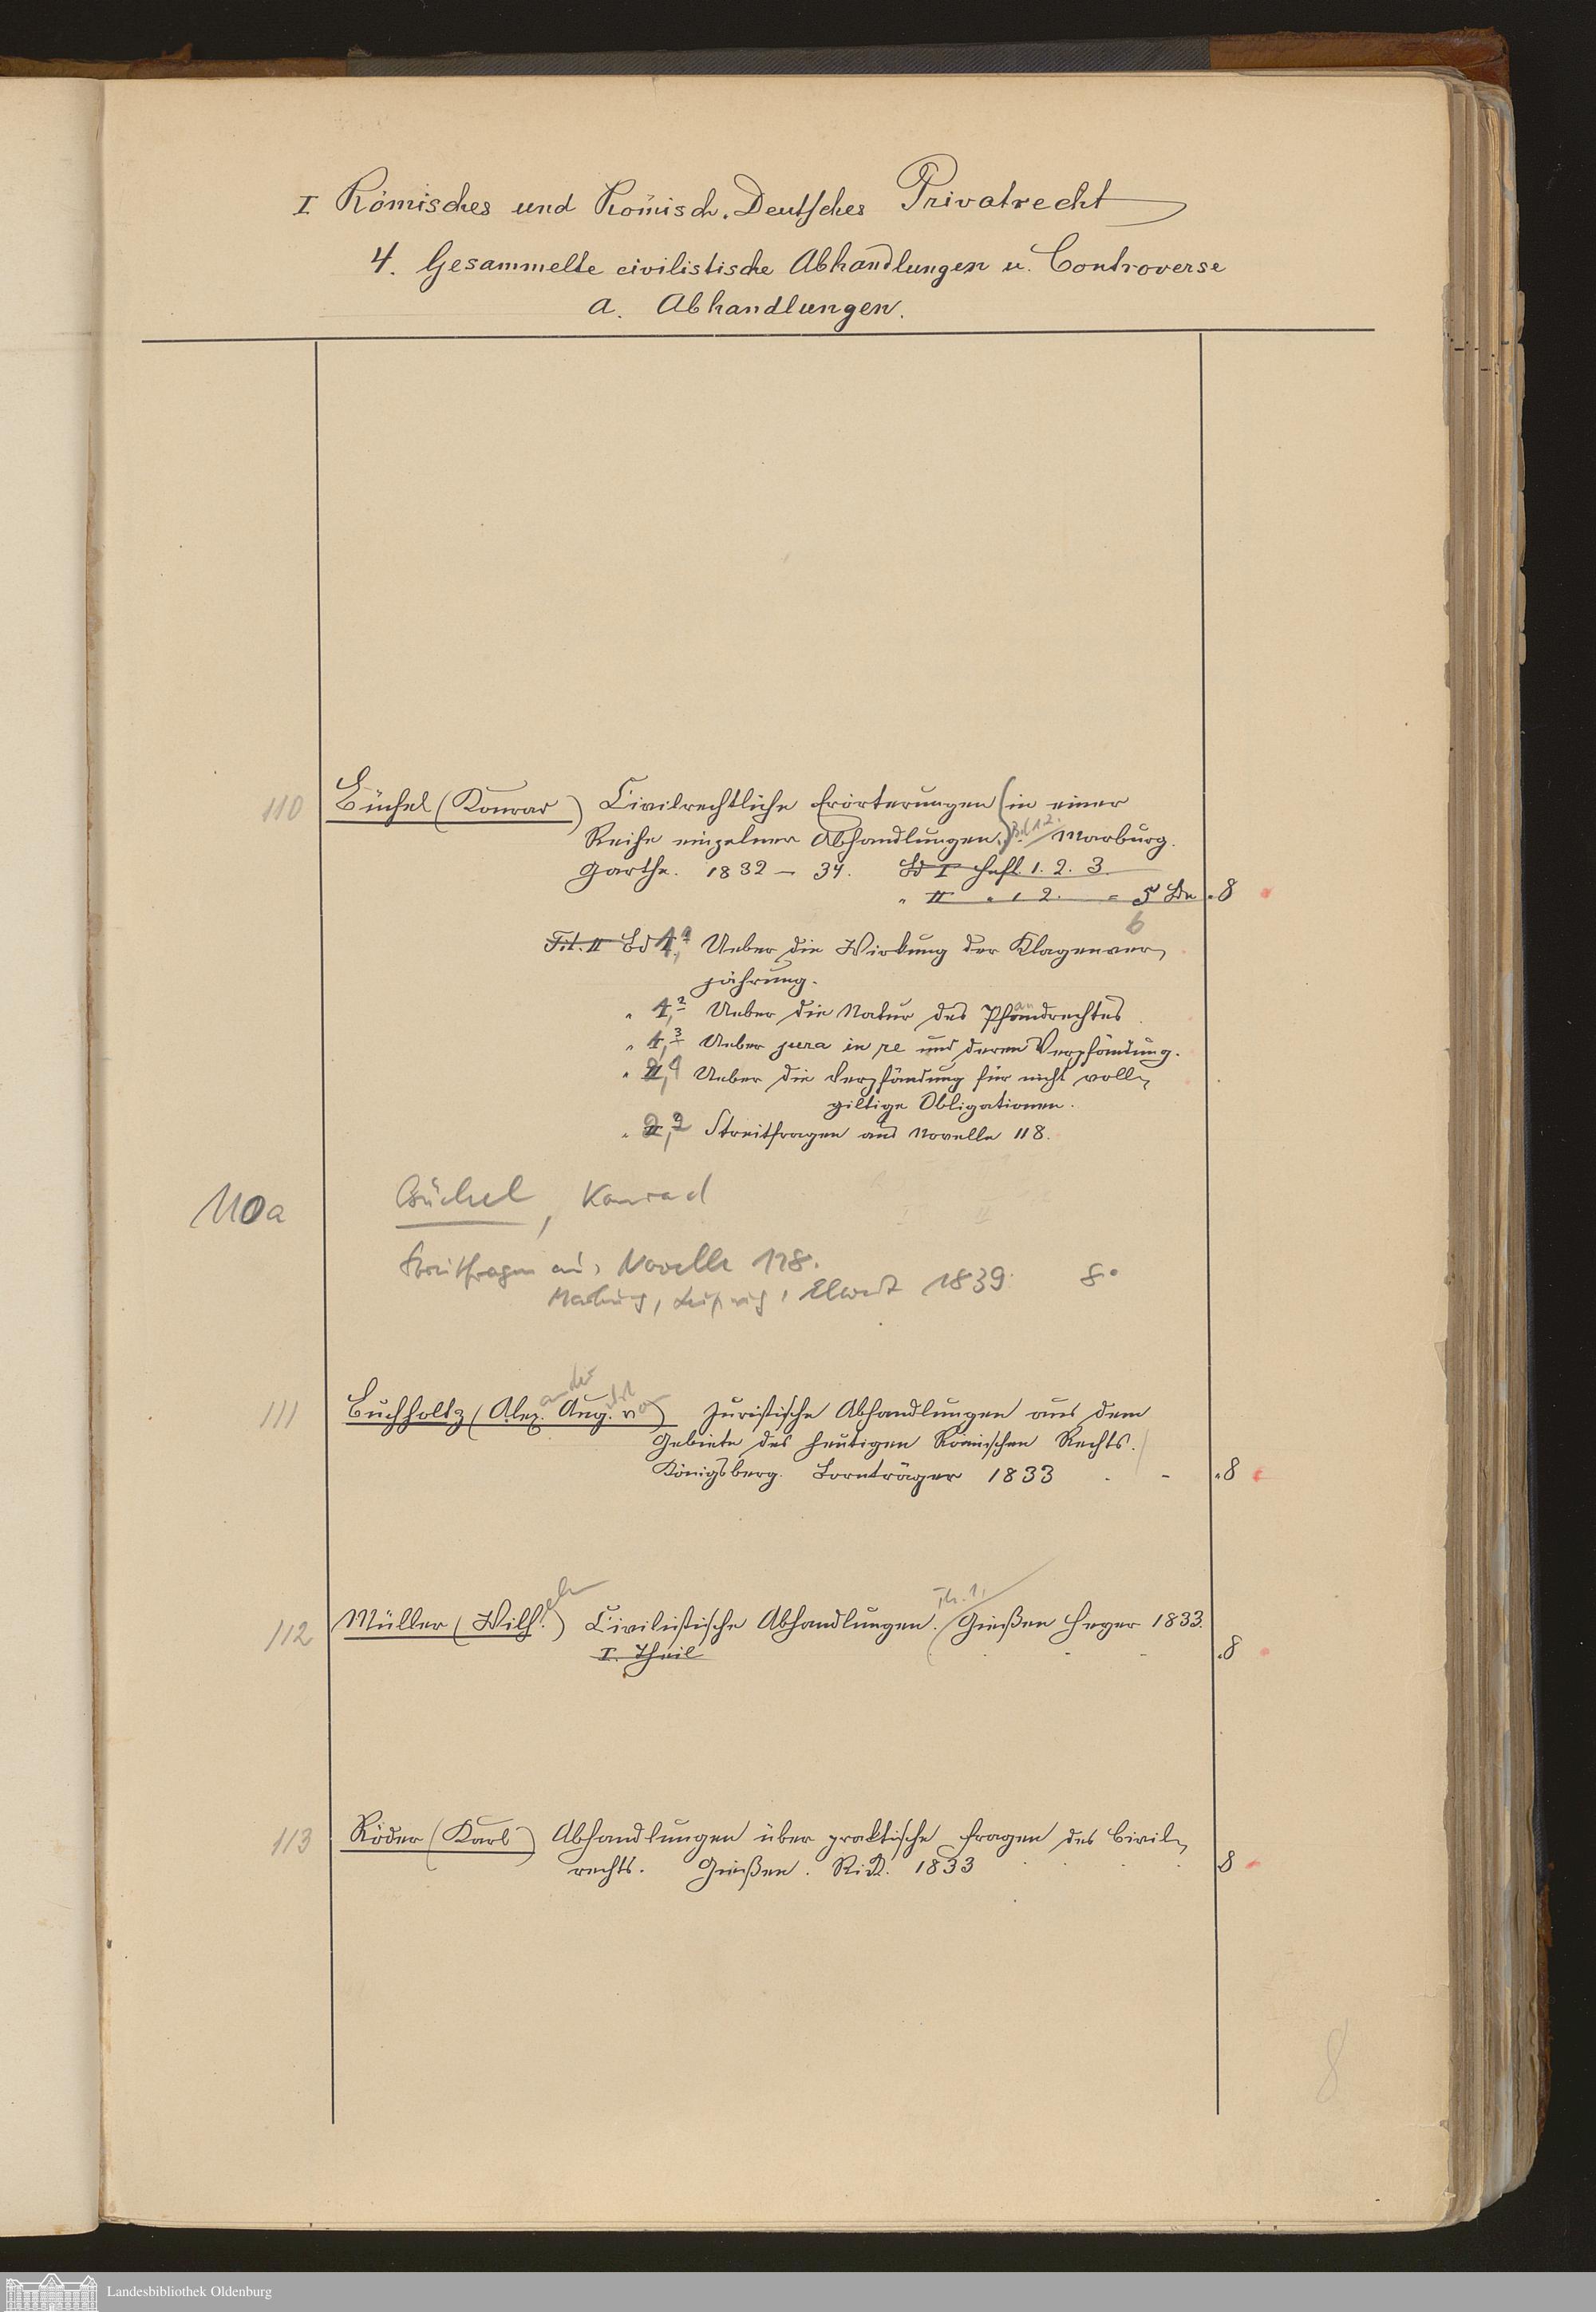 I Römisches und Römisch-Deutsches Privatrecht
4. Gesammelte civilistische Abhandlungen u. Controverse
a. Abhandlungen.
110 Büchel (Konrad) Civilrechtliche Erörterungen (in einer
Reihe einzelner Abhandlungen.) Bd 1. 2. Marburg.
Garthe. 1832 – 34. Bd I Heft 1. 2. 3.
" II " 1 2. = 5 Bde .8
6
Tit. II Bd 1,1 Ueber die Wirkung der Klagenver-
jährung.
" 1,2 Ueber die Natur des Pfandrechtes
" 1,3 Ueber jura in re und deren Verpfändung.
" 2,1 Ueber die Verpfändung für nicht voll-
giltige Obligationen.
" 2,2 Streitfragen aus Novelle 118.
110a Büchel, Konrad
Streitfragen aus Novelle 118.
Marburg, Leipzig, Elwert 1839. 8°
111 Buchholtz (Alexander Aug. v) Juristische Abhandlungen aus dem
Gebiete des heutigen Römischen Rechts.
Königsberg. Bornträger 1833 . - .8
112 Müller (Wilhelm) Civilistische Abhandlungen. Th. 1. Gießen Heyer 1833.
I. Theil .8
113 Röder (Karl) Abhandlungen über praktische Fragen des Civil-
rechts. Gießen. Rick. 1833 8
8
Landesbibliothek Oldenburg